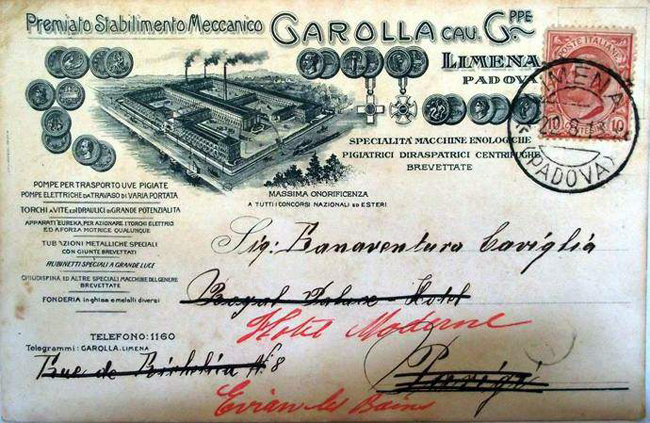 Premiato Stabilimento Meccanico
GAROLLA CAV. GPPE
LIMENA
PADOVA
POSTE ITALIANE
10
LIMENA
(PADOVA)
SPECIALITÀ MACCHINE ENOLOGICHE
PIGIATRICI DIRASPATRICI CENTRIFUGHE
BREVETTATE
MASSIMA ONORIFICENZA
A TUTTI I CONCORSI NAZIONALI ED ESTERI
POMPE PER TRASPORTO UVE PIGIATE
POMPE ELETTRICHE DA TRAVASO DI VARIA PORTATA
TORCHI A VITE ED IDRAULICI DI GRANDE POTENZIALITA
APPARATI EUREKA, PER AZIONARE I TORCHI ELETTRICI
ED A FORZA MOTRICE QUALUNQUE
TUBAZIONI METALLICHE SPECIALI
CON GIUNTE BREVETTATI
RUBINETTI SPECIALI A GRANDE LUCE
ED ALTRE SPECIALI MACCHINE DEL GENERE
BREVETTATE
FONDERIA in ghisa e metalli diversi
TELEFONO: 1160
Telegrammi: GAROLLA. LIMENA
Sig: Bonaventura Caviglia
Royal Palace Hotel
Hotel Moderne
Rue de Richelieu N. 8
Parigi
Evian les Bains